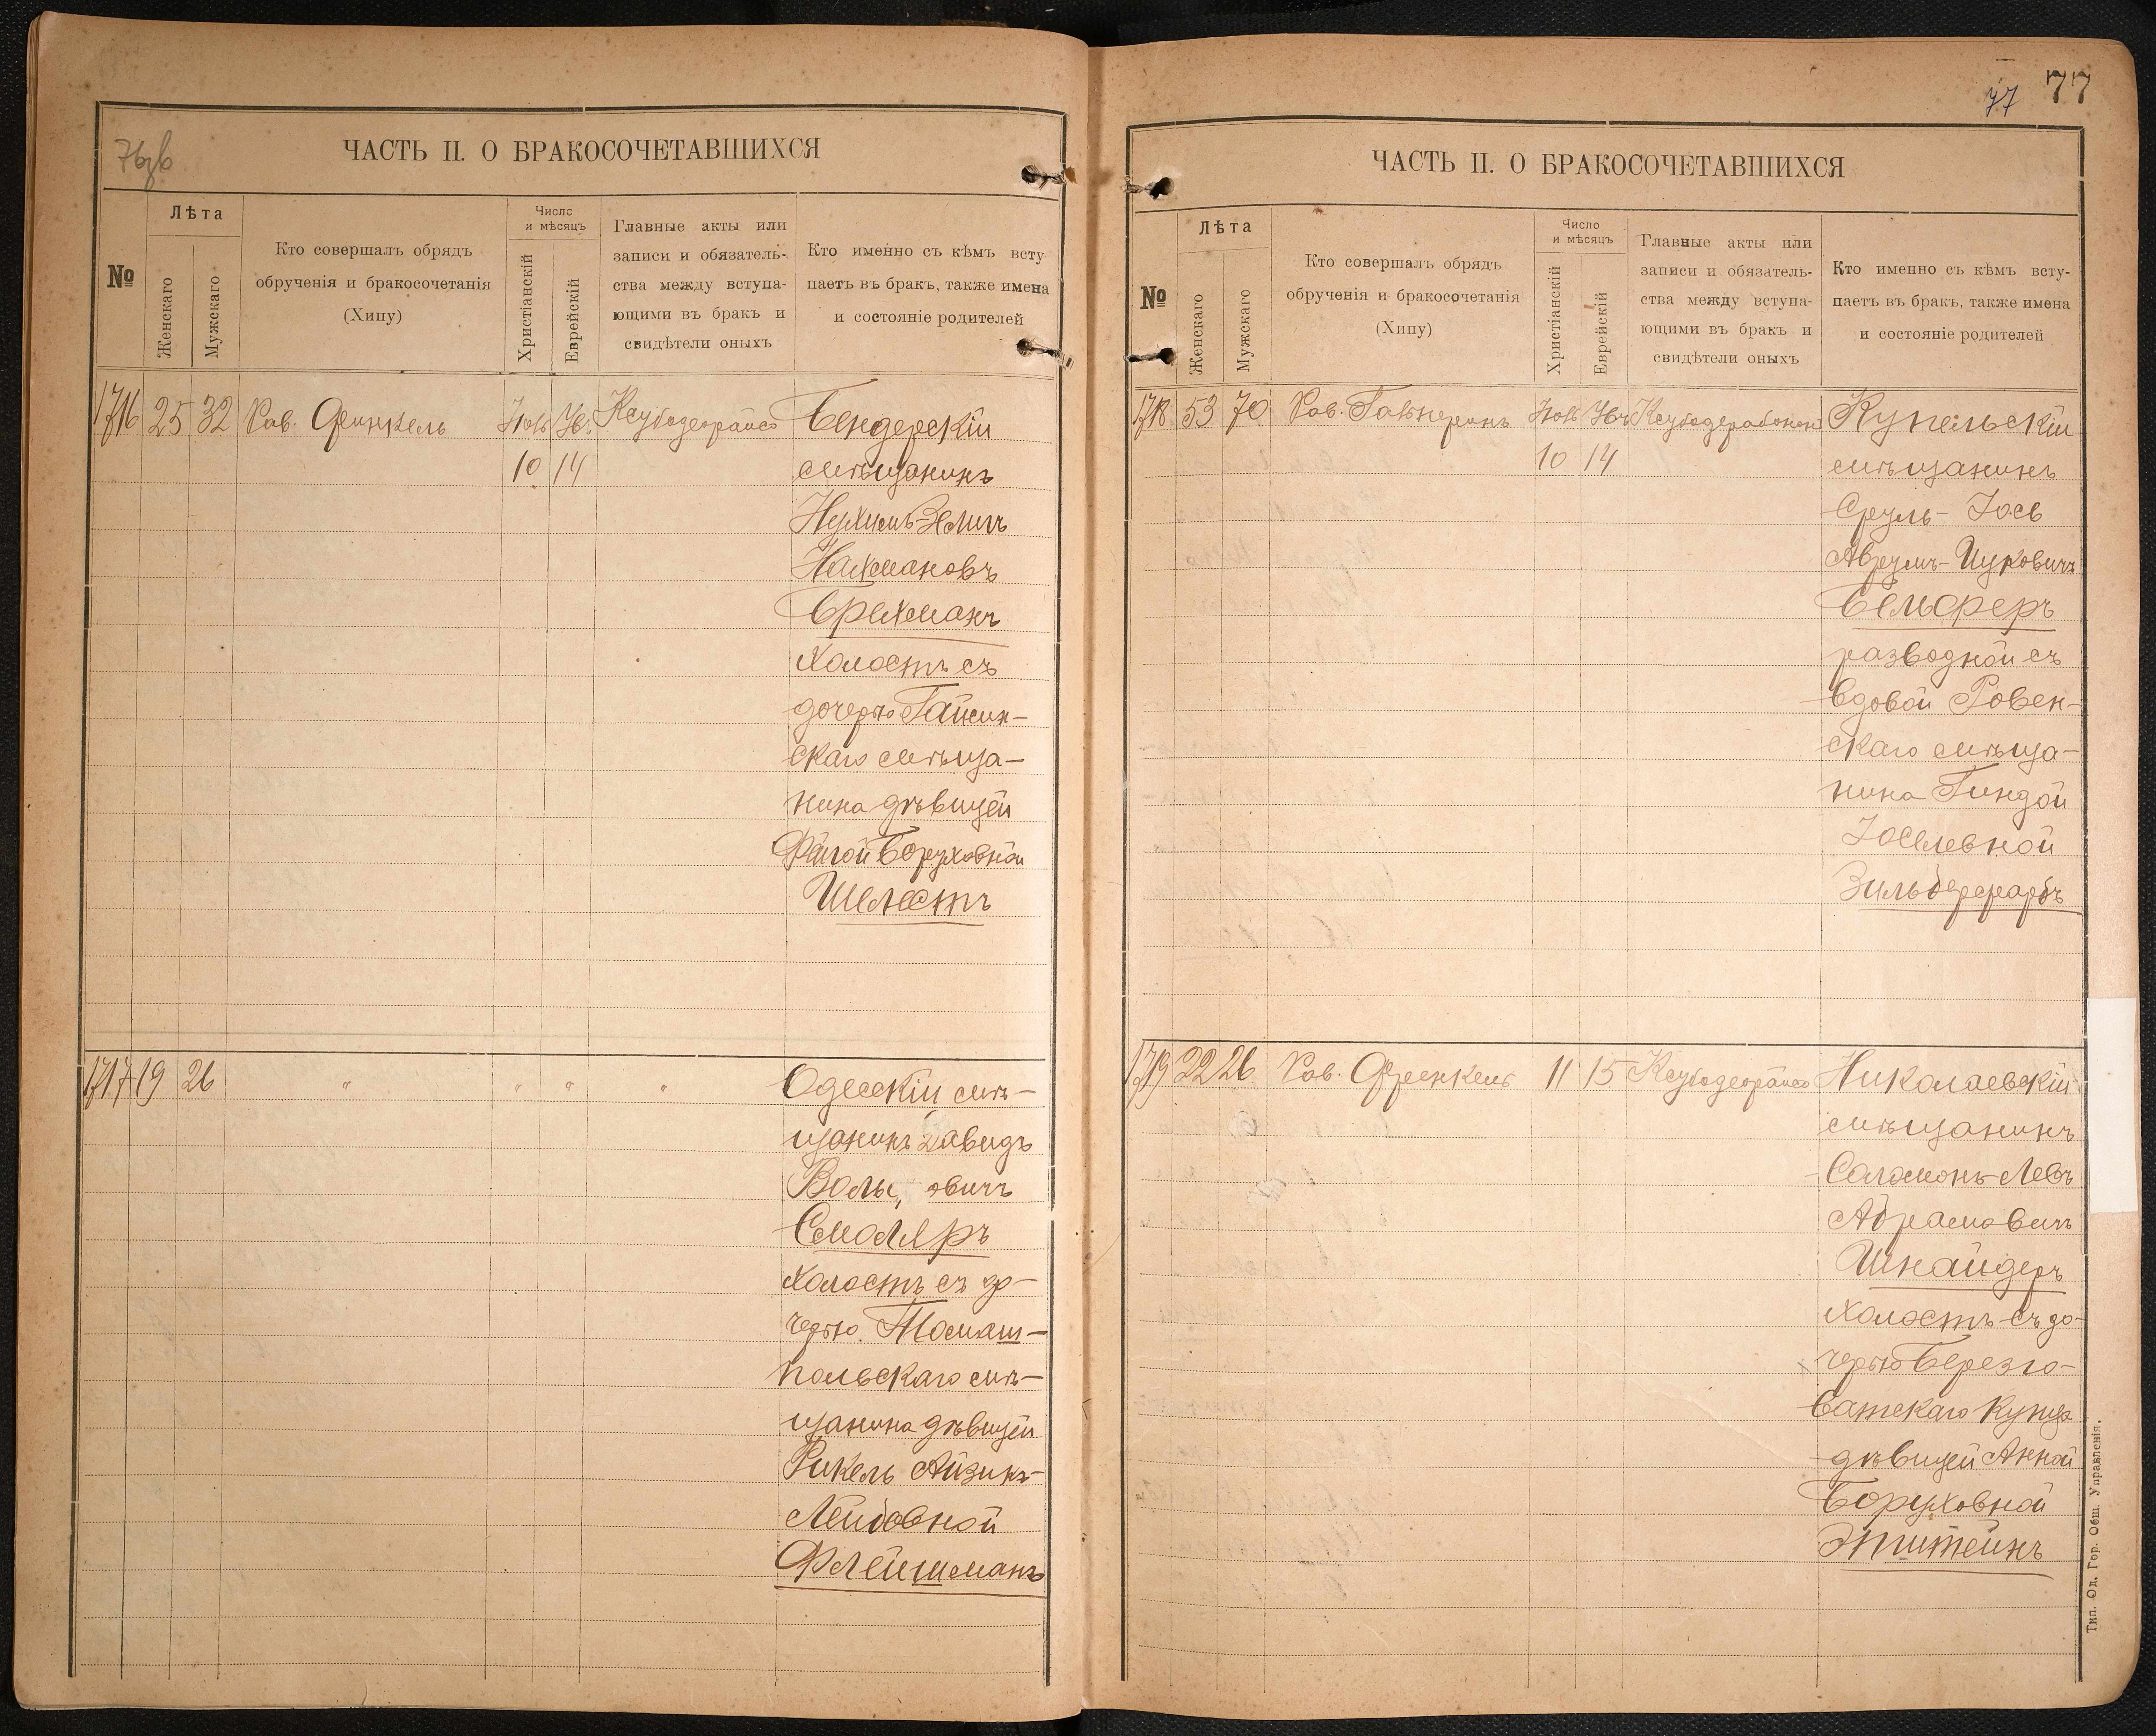 76 об
ЧАСТЬ II. О БРАКОСОЧЕТАВШИХСЯ
№
Лѣта
Женскаго
Мужскаго
Кто совершалъ обрядъ
обрученія и бракосочетанія
(Хипу)
Число
и мѣсяцъ
Христіанскій
Еврейскій
Главные акты или
записи и обязатель-
ства между вступа-
ющими въ бракъ и
свидѣтели оныхъ
Кто именно съ кѣмъ всту
паетъ въ бракъ, также имена
и состояніе родителей
1716 25 32 Рав. Френкель
10 14
Бендерскій
мѣщанинъ
Нухимъ-Зелигъ
Нахмановъ
Брехманъ
холостъ съ
дочерью Гайсин-
скаго мѣща-
нина дѣвицей
Фейгой Боруховной
Шелестъ
1717 19 26 " " " "
Одесскій мѣ-
щанинъ Давидъ
овичъ
Смоляръ
холостъ съ до-
черью Томаш-
польскаго мѣ-
щанина дѣвицей
Рикель Айзикъ-
Лейбовной
Флейшманъ
77
77
ЧАСТЬ II. О БРАКОСОЧЕТАВШИХСЯ
№
Лѣта
Женскаго
Мужскаго
Кто совершалъ обрядъ
обрученія и бракосочетанія
(Хипу)
Число
и мѣсяцъ
Христіанскій
Еврейскій
Главные акты или
записи и обязатель-
ства между вступа-
ющими въ бракъ и
свидѣтели оныхъ
Кто именно съ кѣмъ всту-
паетъ въ бракъ, также имена
и состояніе родителей
1718 53 70 Рав. Гальперинъ
10 14
Купельскій
мѣщанинъ
Сруль-Іось
Аврумъ-Ицковичъ
Бельферъ
разводной съ
вдовой Ровен-
скаго мѣща-
нина Гиндой
Іоселевной
Зильберфарбъ
1719 22 26 Рав. Френкель 11 15
Николаевскій
мѣщанинъ
Соломонъ-Левъ
Абрамовичъ
Шнайдеръ
холостъ съ до-
черью Березго-
ватскаго купца
дѣвицей Анной
Боруховной
Эпштейнъ
Тип. Од. Гор. Общ. Управленія.